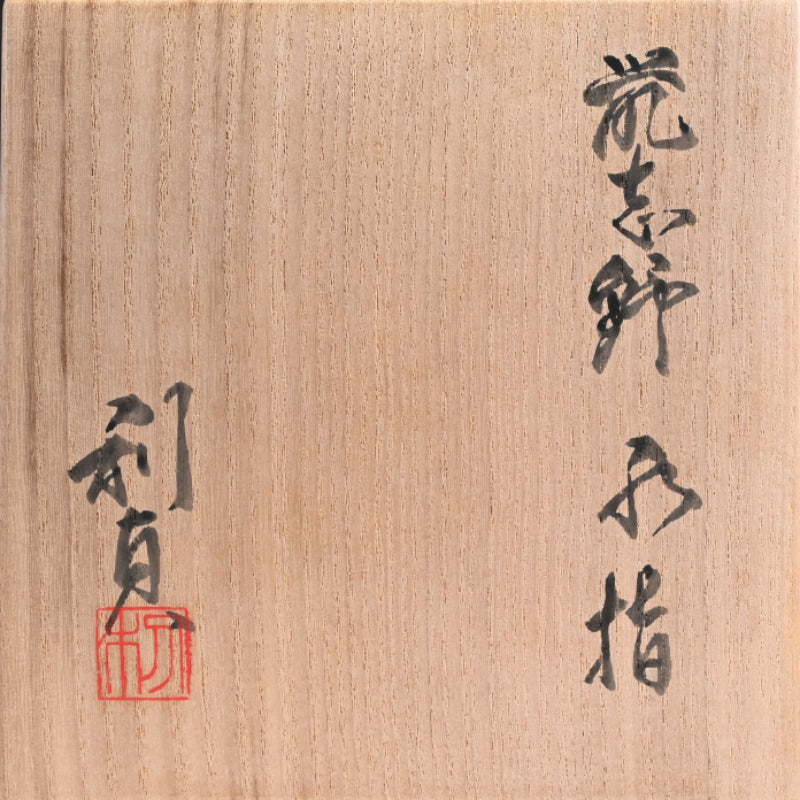 鼡志野 水指
利貞
利